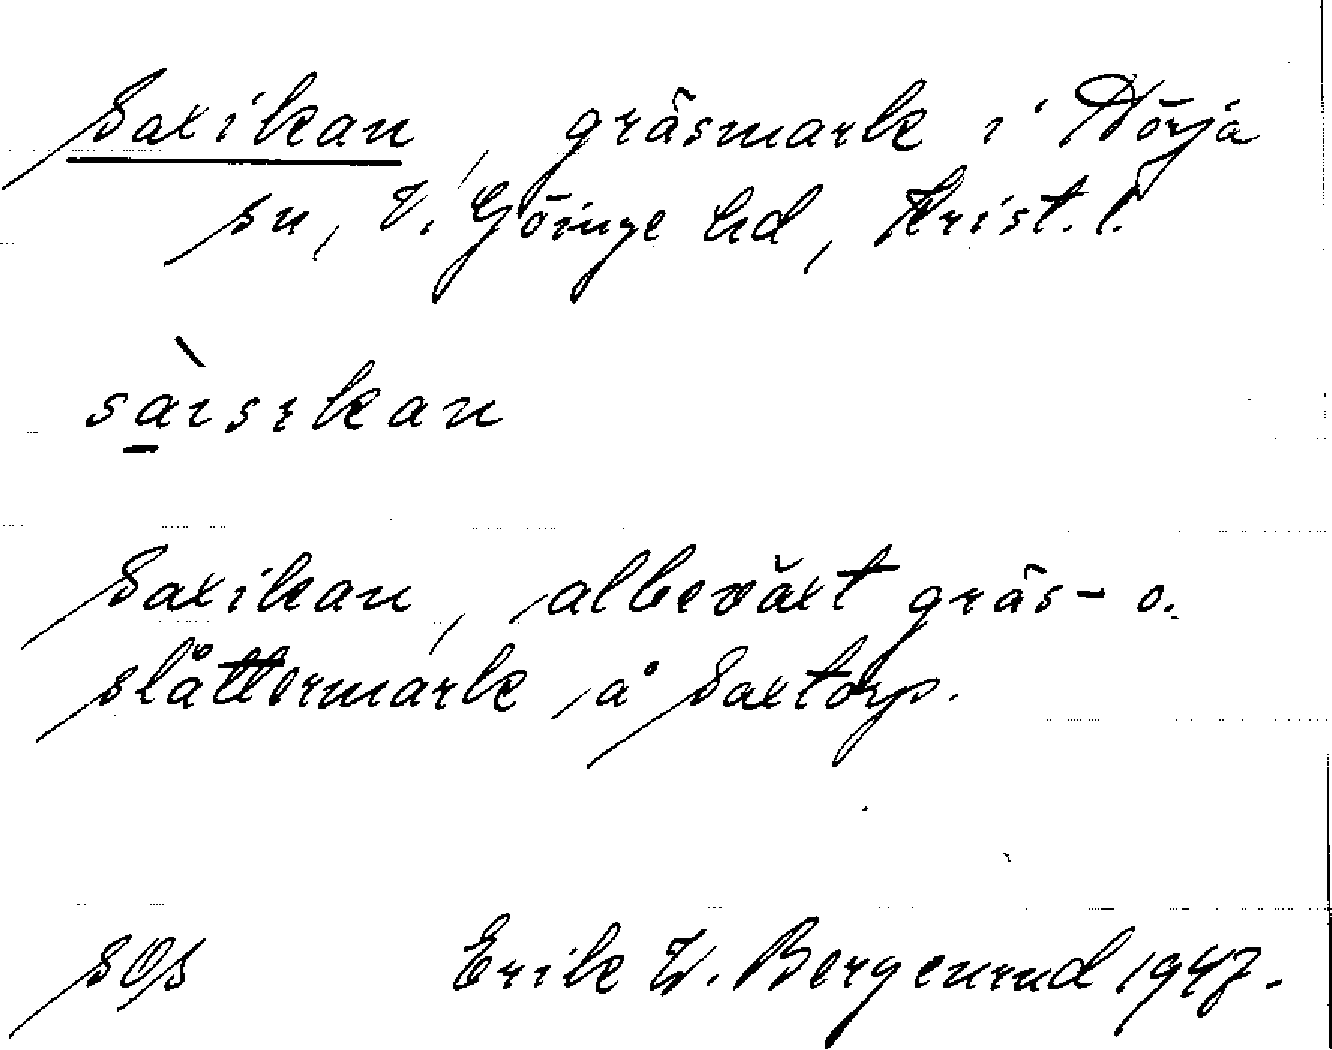 Saxikan, gräsmark i Nörja
sn, V. Göinge hd, Krist. l.
sàisikan
Saxikan, albeväxt gräs- o.
slåttermark å Saxtorp.
Erik W. Bergenrud 1947.